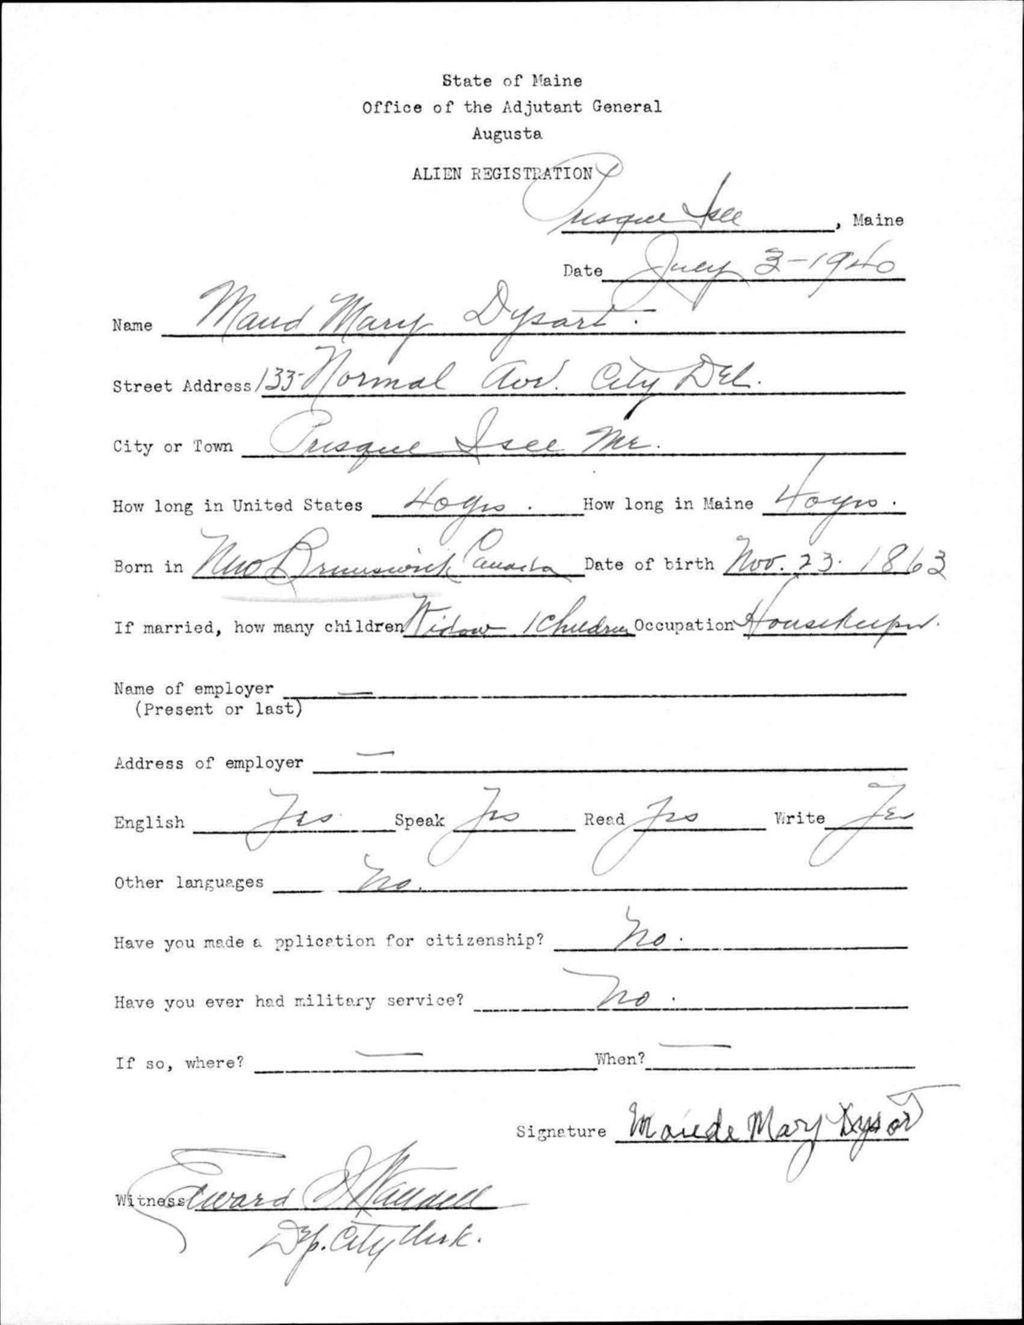 State of Maine
Office of the Adjutant General
Augusta
ALIEN REGISTRATION
Presque Isle, Maine
Date July 3-1940
Name Maud Mary Dysart.
Street Address 133 Normal Ave. City Del.
City or Town Presque Isle Me.
How long in United States 40 yrs. How long in Maine 40 yrs.
Born in New Brunswick Canada Date of birth Nov. 23. 1863
If married, how many children Widow 1 Children Occupation Housekeeper.
Name of employer —
(Present or last)
Address of employer —
English Yes. Speak Yes Read Yes Write Yes
Other languages No.
Have you made a pplication for citizenship? No.
Have you ever had military service? No.
If so, where? — When? —
Signature Maude Mary Dysart
Witness Edward
Dep. City Clerk.